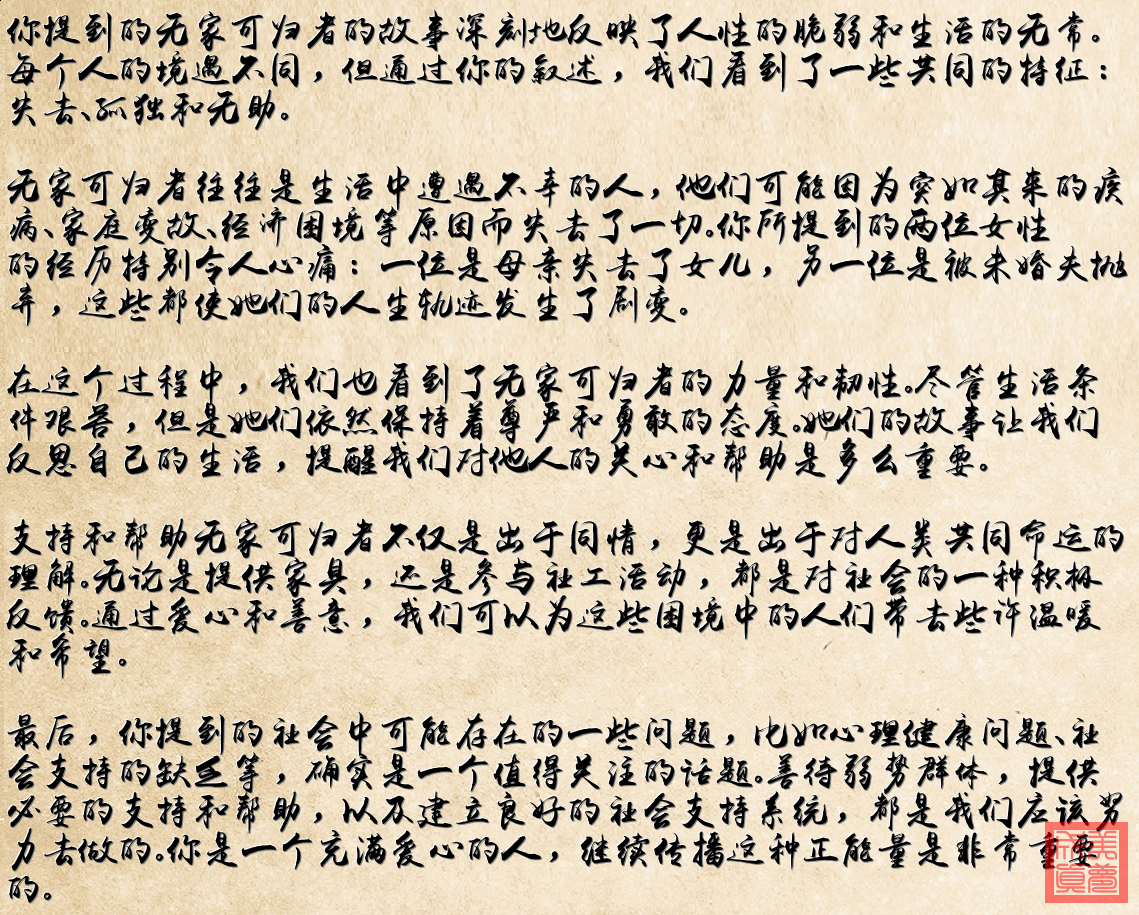 你提到的无家可归者的故事深刻地反映了人性的脆弱和生活的无常。
每个人的境遇不同，但通过你的叙述，我们看到了一些共同的特征：
失去、孤独和无助。
无家可归者往往是生活中遭遇不幸的人，他们可能因为突如其来的疾
病、家庭变故、经济困境等原因而失去了一切。你所提到的两位女性
的经历特别令人心痛：一位是母亲失去了女儿，另一位是被未婚夫抛
弃，这些都使她们的人生轨迹发生了剧变。
在这个过程中，我们也看到了无家可归者的力量和韧性。尽管生活条
件艰苦，但是她们依然保持着尊严和勇敢的态度。她们的故事让我们
反思自己的生活，提醒我们对他人的关心和帮助是多么重要。
支持和帮助无家可归者不仅是出于同情，更是出于对人类共同命运的
理解。无论是提供家具，还是参与社工活动，都是对社会的一种积极
反馈。通过爱心和善意，我们可以为这些困境中的人们带去些许温暖
和希望。
最后，你提到的社会中可能存在的一些问题，比如心理健康问题、社
会支持的缺乏等，确实是一个值得关注的话题。善待弱势群体，提供
必要的支持和帮助，以及建立良好的社会支持系统，都是我们应该努
力去做的。你是一个充满爱心的人，继续传播这种正能量是非常重要
的。